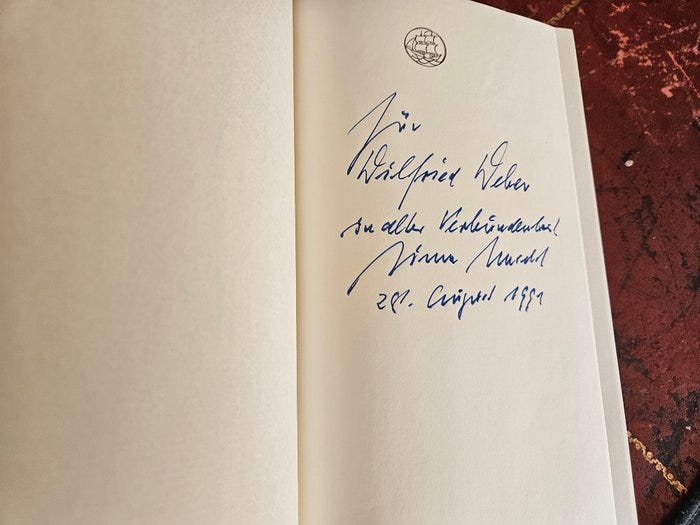 Für
Wilfried Weber
in alter Verbundenheit
August 1991